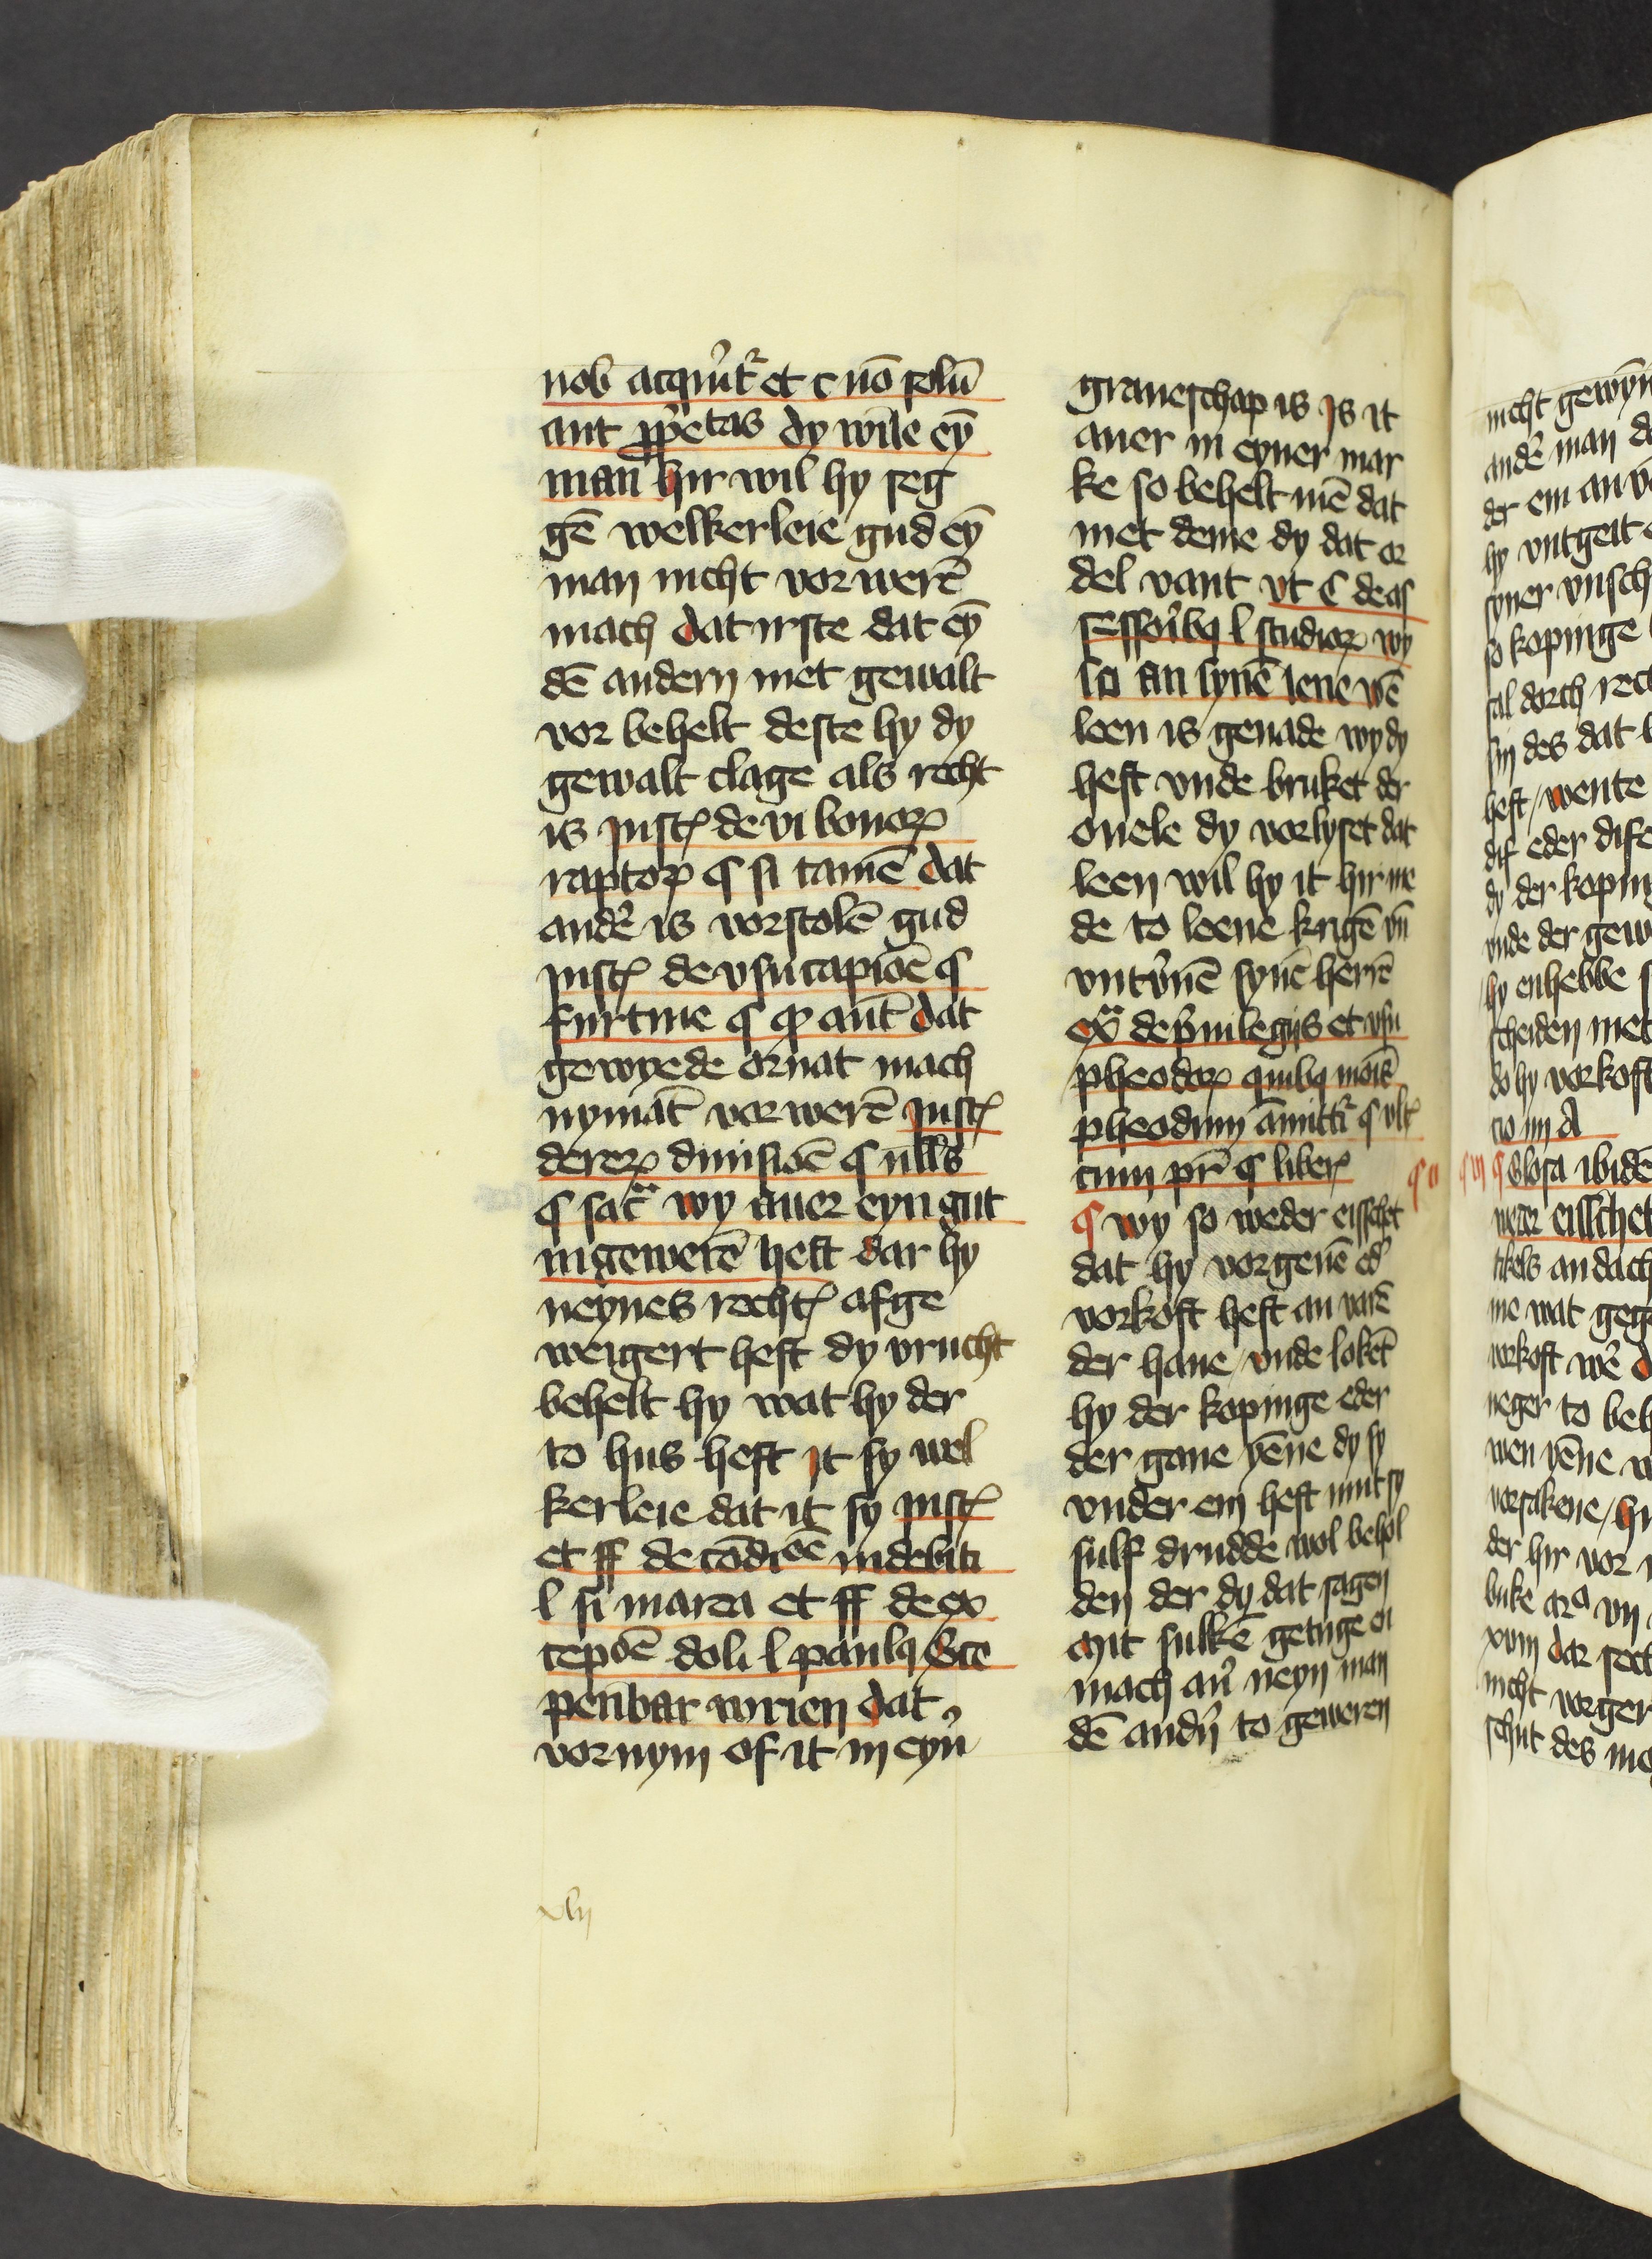 nob acquīt̄ et c nō solū
aut ꝓpͤetas dy wile eȳ
man hir wil hy seg
gē welkerleie gud eȳ
man nicht vorwerē
mach dat irste dat eȳ
dē andern met gewalt
vor behelt deste hy dy
gewalt clage als recht
is inst̄ de vi bonoꝝ
raptoꝝ ¶ si tamē dat
andē is vorstolē gud
inst̄ de vsucapiōē ¶
furtiue ¶ ꝙ aūt dat
gewyede ornat mach
nymāt vorwerē inst̄
dereꝝ diuisiōē ¶ nllīs
¶ sac̄ᵃ wy auer eyn gut
ingewerē heft dar hy
neynes recht̄ afge
weigert heft dy vrucht
behelt hy wat hy der
to hus heft it sy wel
kerleie dat it sy inst̄
et ff de cōdiōē indebiti
l si marea et ff de ex
cepōē doli l paulꝯ Ste
penbar wrien dat
vornym of it in eyn̄
graueschap is is it
auer in eyner mar
ke so behelt mē dat
met deme dy dat or
del vant vt C de as
sessoribꝯ l studioꝝ wy
so an synē lene wē
leen is genade wy dy
heft vnde bruket der
ouele dy vorlyset dat
leen wil hy it hir me
de to leene krigē vn̄
vntv̄nē synē herrē
exᵃ de p̄uilegijs et vsu
pheodoꝝ quibꝯ mōis
pheodum āmittᵗ ¶ vlt̄
cum pr̄ ¶ liber̄
¶ wy so weder eisschet
dat hy vorgeuē ed̄
vorkoft heft an varē
der haue vnde lokēt
hy der kopinge eder
der gaue yēne dy sy
vnder em heft mut sy
sulf drudde wol behol
den der dy dat sagen
Mit sulkē getuge en
mach an̄ neyn man
dē andn̄ to geweren
xlij
¶ ii
¶ iij
nicht gewyn
andē man d
der em an v
hy vntgeit
syner vnsch
so kopinge
sal dorch rech
sin des dat
heft / wente
dif eder dife
dy der koping
vnde der gew
hy enhebbe s
scheiden met
do hy vorkoft
cio iiii A
¶ Glosa ibidē
weder eisschet
tikels an dach
me wat gege
vorkoft wē d
neger to beh
wen yēne w
vorsakene / hi
der hir vor
buke arᵃ vij
xviii dar sech
nicht vorger
schut des mo